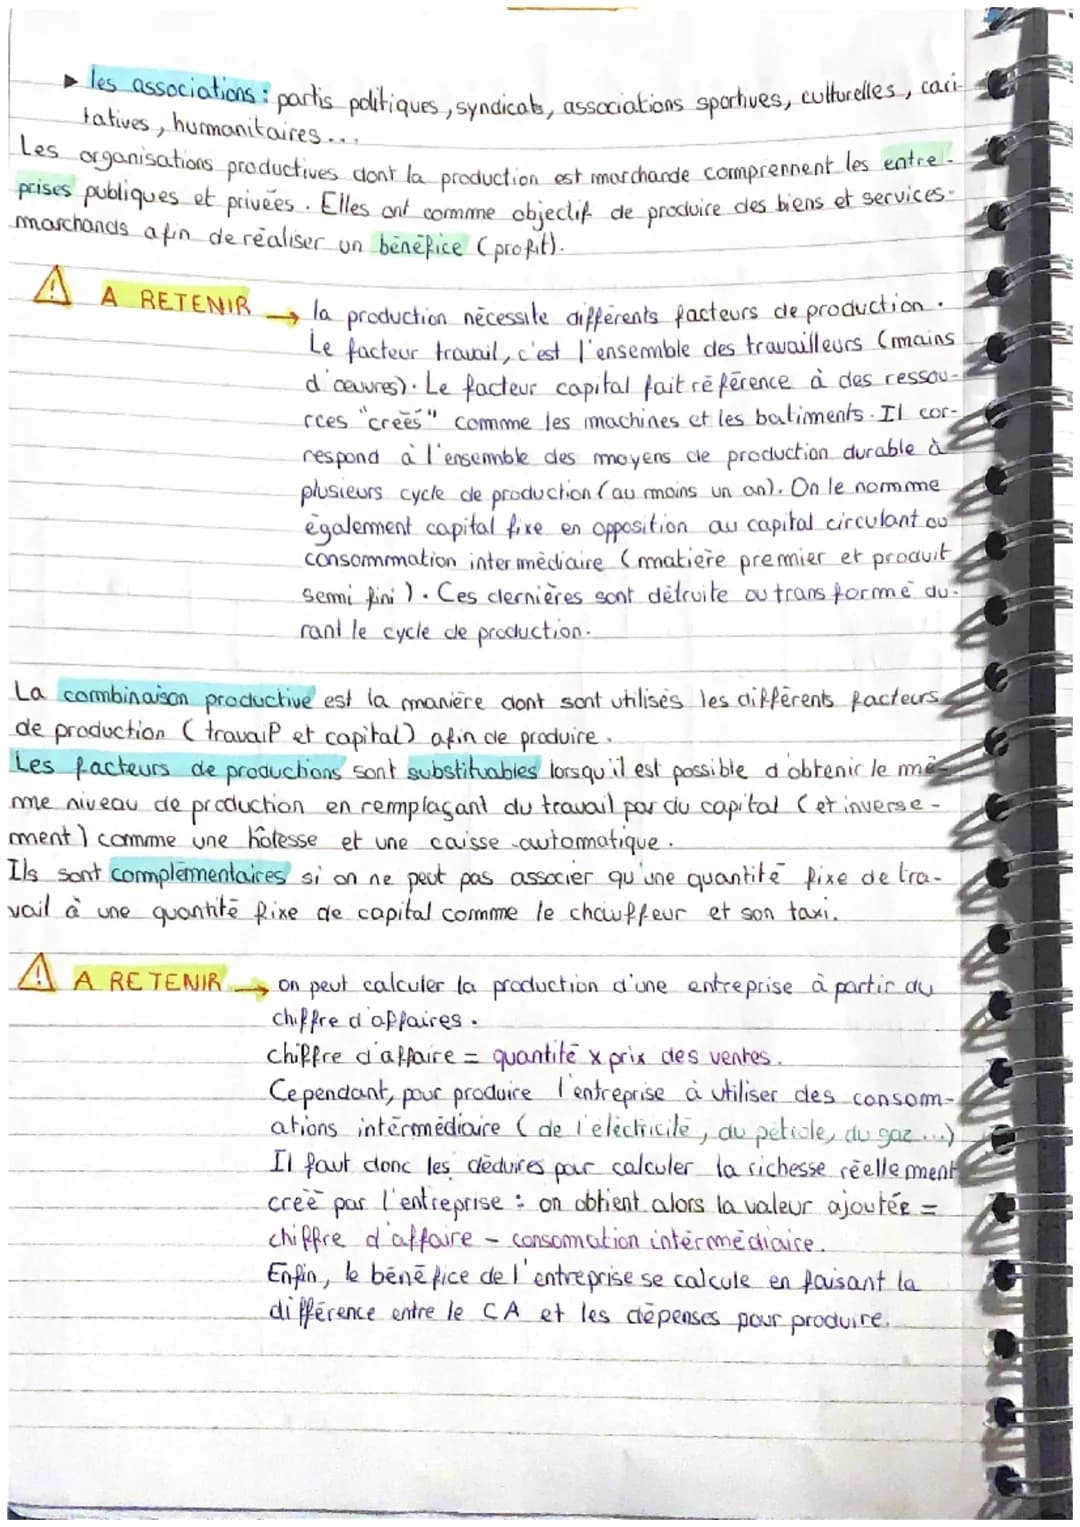 ▸ les associations : partis politiques, syndicats, associations sportives, culturelles, cari-
tatives, humanitaires...
Les organisations productives dont la production est marchande comprennent les entre-
prises publiques et privées. Elles ont comme objectif de produire des biens et services
marchands afin de réaliser un bénéfice (profit).
⚠ A RETENIR → la production nécessite différents facteurs de production.
Le facteur travail, c'est l'ensemble des travailleurs (mains
d'œuvres). Le facteur capital fait référence à des ressou-
rces "créés" comme les machines et les batiments. Il cor-
respond à l'ensemble des moyens de production durable à
plusieurs cycle de production (au moins un an). On le nomme
également capital fixe en opposition au capital circulant ou
consommation intermédiaire (matière premier et produit
semi fini). Ces dernières sont détruite ou transformé du-
rant le cycle de production.
La combinaison productive est la manière dont sont utilisés les différents facteurs
de production (travail et capital) afin de produire.
Les facteurs de productions sont substituables lorsqu'il est possible d'obtenir le mê-
me niveau de production en remplaçant du travail par du capital (et inverse-
ment) comme une hôtesse et une caisse automatique.
Ils sont complémentaires si on ne peut pas associer qu'une quantité fixe de tra-
vail à une quantité fixe de capital comme le chauffeur et son taxi.
⚠ A RETENIR → on peut calculer la production d'une entreprise à partir du
chiffre d'affaires.
chiffre d'affaire = quantité x prix des ventes.
Cependant, pour produire l'entreprise à utiliser des consom-
ations intérmédiaire (de l'éléctricité, du pétrole, du gaz...)
Il faut donc les déduires pour calculer la richesse réellement
créé par l'entreprise : on obtient alors la valeur ajoutée =
chiffre d'affaire - consomation intérmédiaire.
Enfin, le bénéfice de l'entreprise se calcule en faisant la
différence entre le CA et les dépenses pour produire.